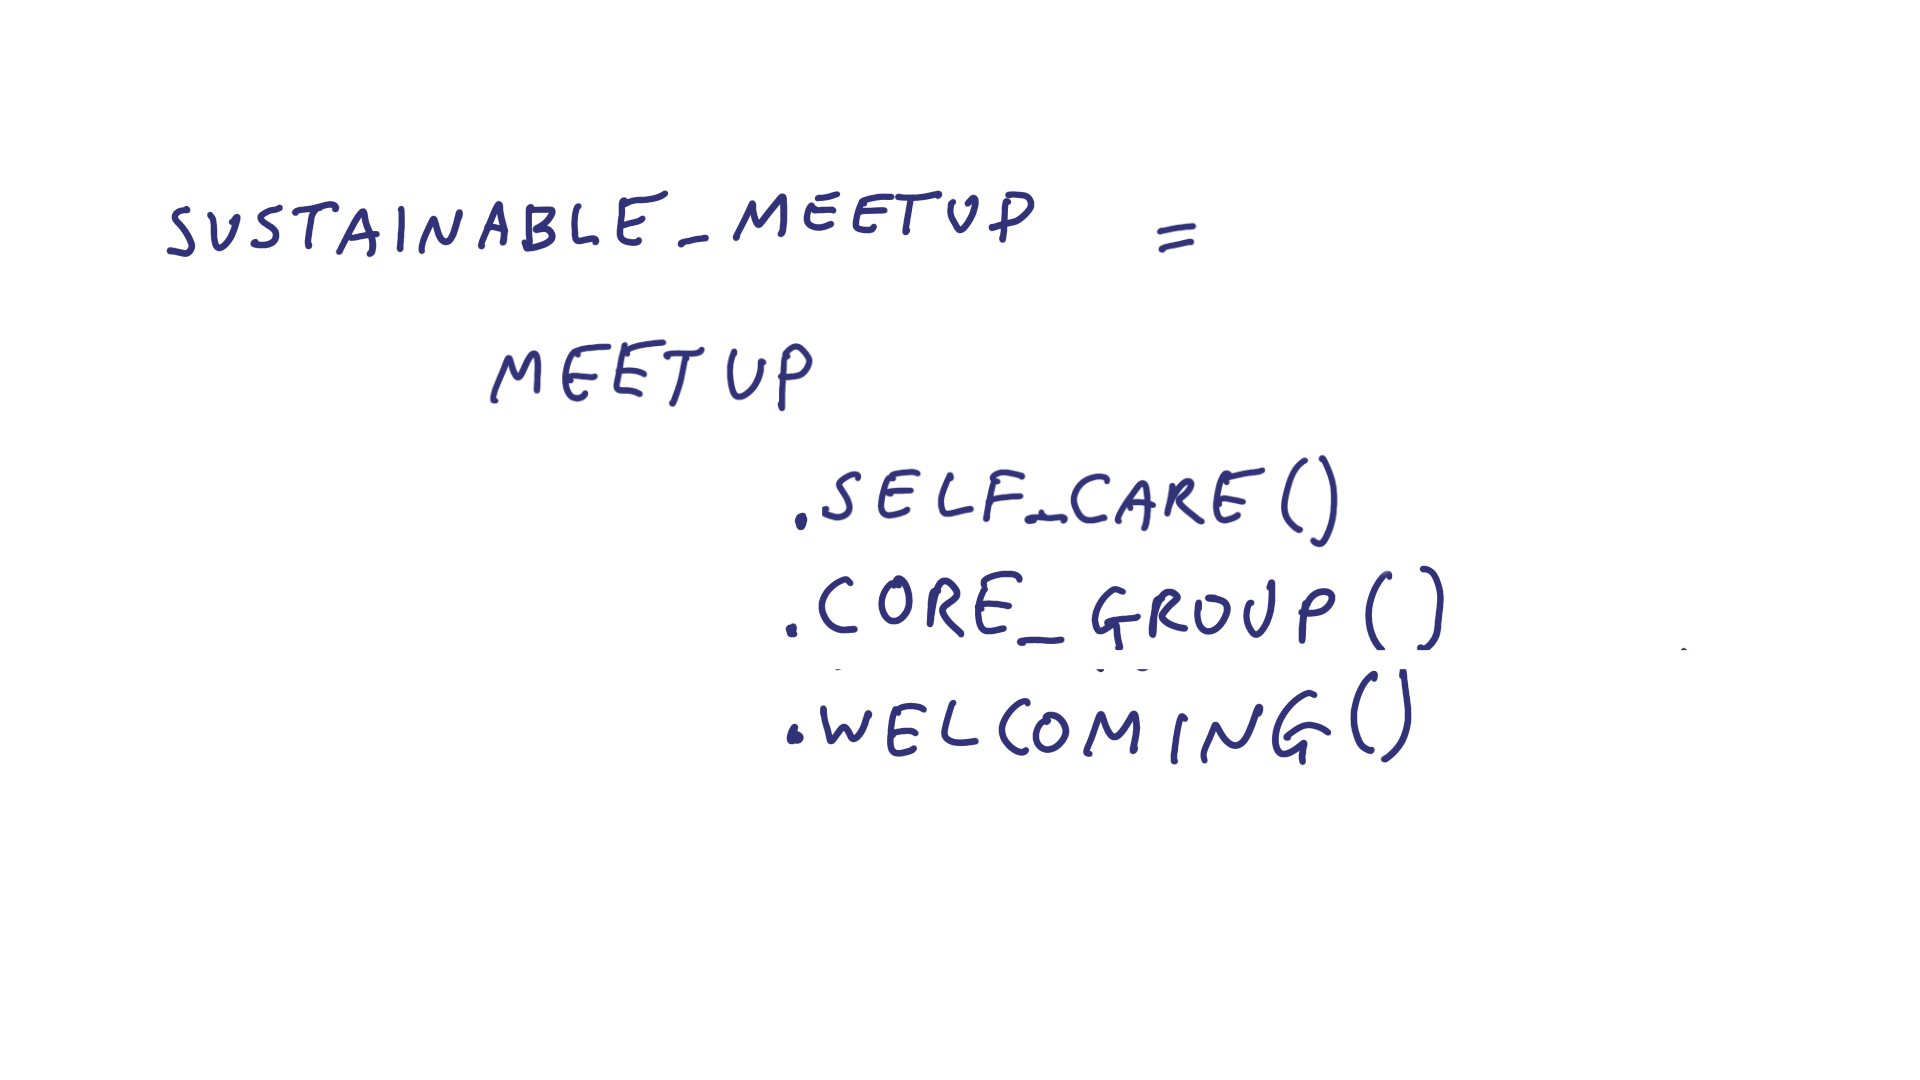 SUSTAINABLE_MEETUP =
MEETUP
.SELF_CARE()
.CORE_GROUP()
.WELCOMING()